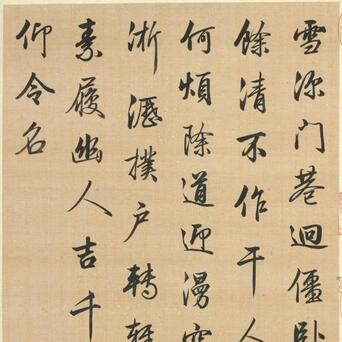 雪深门巷迥僵卧
餘清不作干人
何煩除道迎漫
淅瀝撲户轉
素履幽人吉千
仰令名